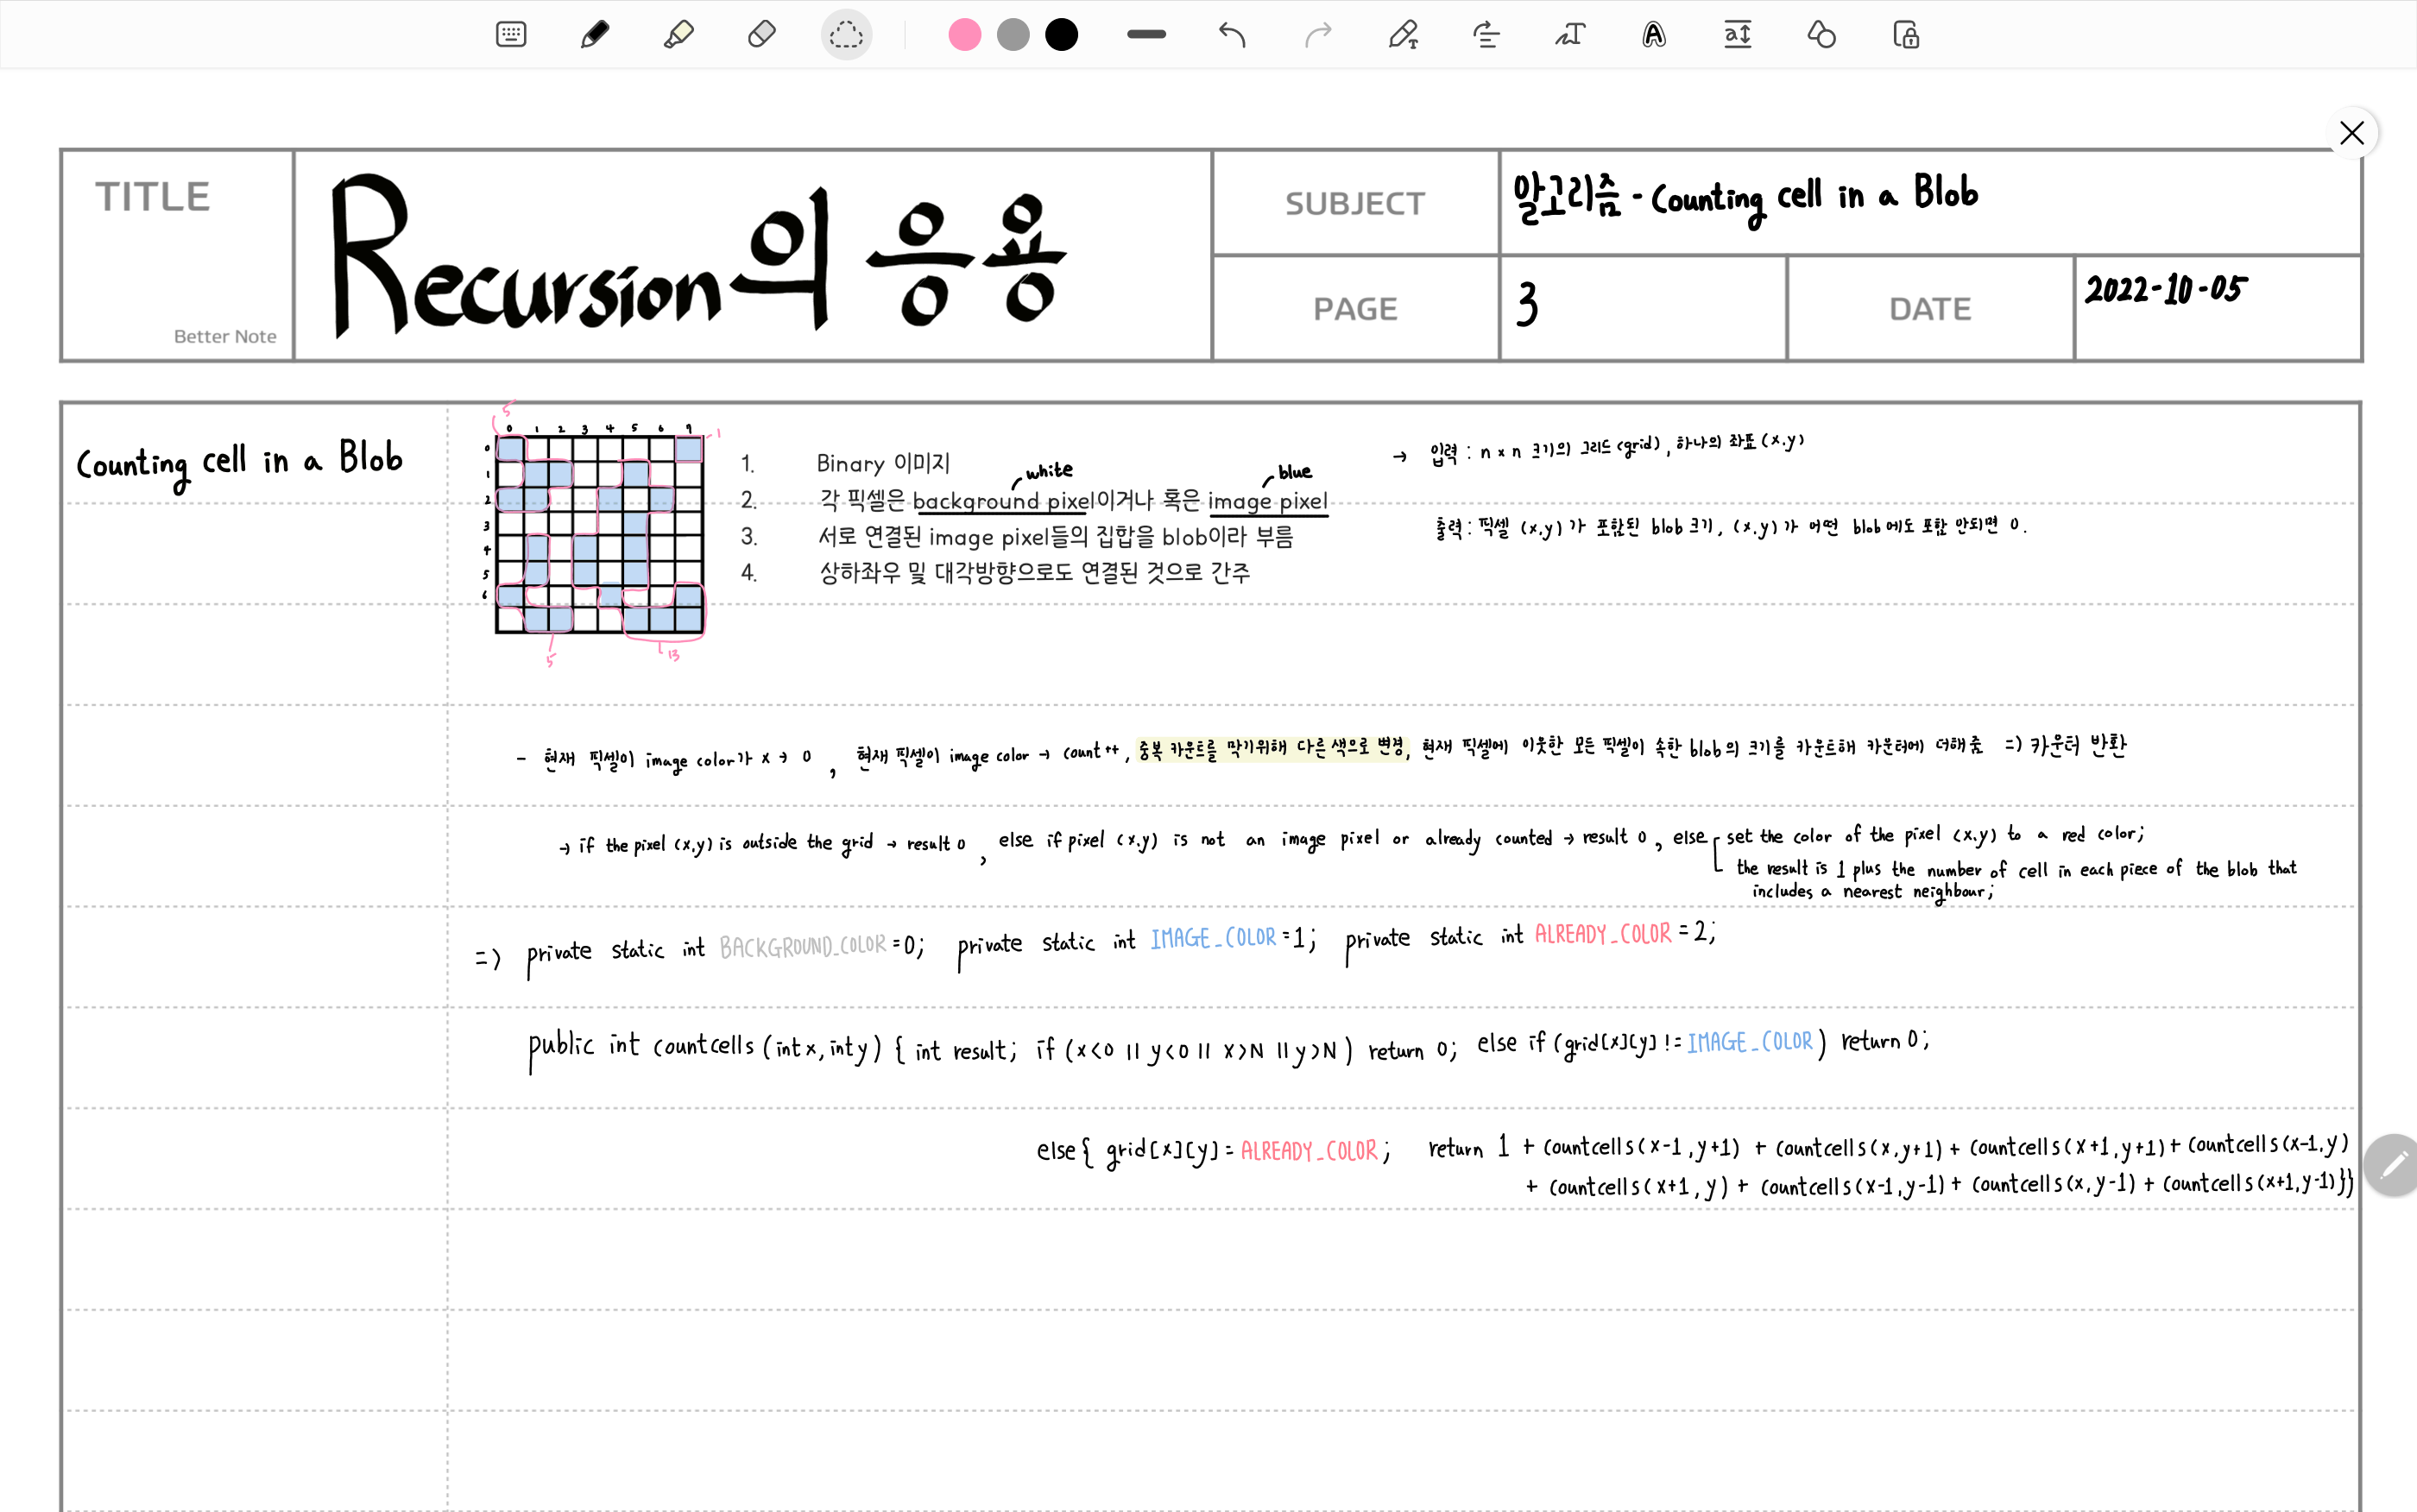 TITLE
Better Note
Recursion의 응용
SUBJECT
알고리즘 - Counting cell in a Blob
PAGE
3
DATE
2022-10-05
Counting cell in a Blob
5
0 1 2 3 4 5 6 7
1
0
1
2
3
4
5
6
5
13
1. Binary 이미지
white
blue
2. 각 픽셀은 background pixel이거나 혹은 image pixel
3. 서로 연결된 image pixel들의 집합을 blob이라 부름
4. 상하좌우 및 대각방향으로도 연결된 것으로 간주
→ 입력 : n x n 크기의 그리드 (grid), 하나의 좌표 (x.y)
출력 : 픽셀 (x.y) 가 포함된 blob 크기, (x.y) 가 어떤 blob에도 포함 안되면 0.
- 현재 픽셀이 image color가 x → 0 , 현재 픽셀이 image color → count ++, 중복 카운트를 막기위해 다른 색으로 변경, 현재 픽셀에 이웃한 모든 픽셀이 속한 blob의 크기를 카운트해 카운터에 더해줌 => 카운터 반환
→ if the pixel (x,y) is outside the grid → result 0 , else if pixel (x.y) is not an image pixel or already counted → result 0 , else set the color of the pixel (x.y) to a red color;
the result is 1 plus the number of cell in each piece of the blob that
includes a nearest neighbour;
=> private static int BACKGROUND_COLOR = 0; private static int IMAGE_COLOR = 1; private static int ALREADY_COLOR = 2;
public int countcells (int x, int y) { int result; if (x<0 || y<0 || x>N || y>N ) return 0; else if (grid[x][y] != IMAGE_COLOR) return 0;
else { grid[x][y] = ALREADY_COLOR ; return 1 + countcells (x-1, y+1) + countcells (x, y+1) + countcells (x+1, y+1) + countcells (x-1, y)
+ countcells (x+1, y) + countcells (x-1, y-1) + countcells (x, y-1) + countcells (x+1, y-1) }}